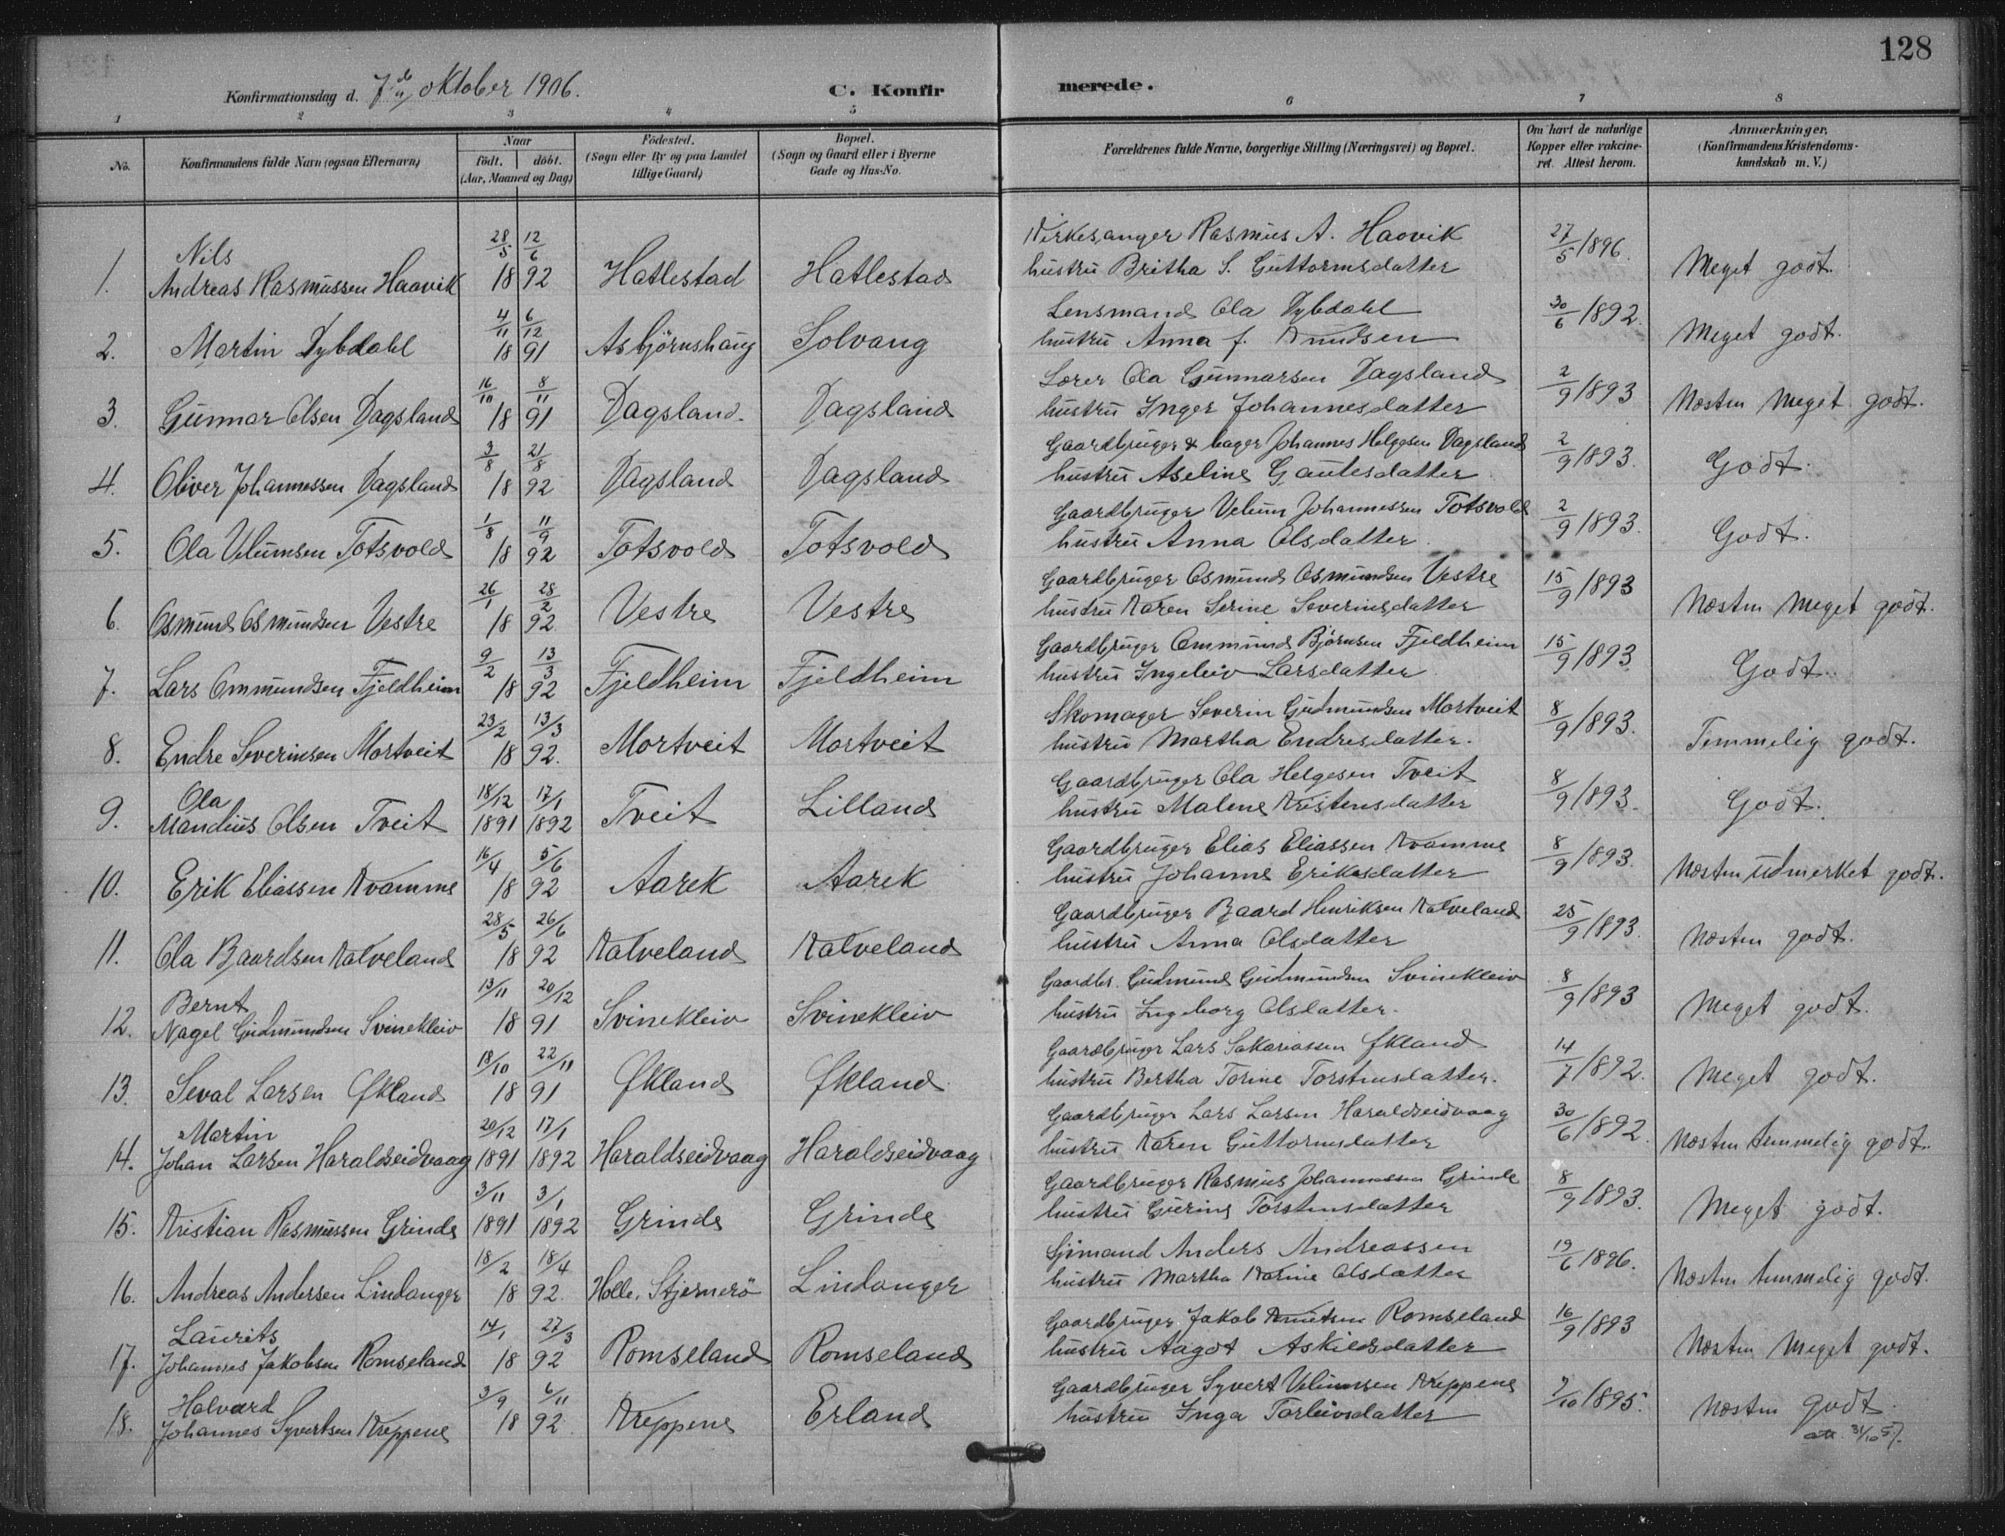 128
Konfirmationsdag d. 7de oktober 1906.
C. Konfirmerede.
1 2 3 4 5 6 7 8
No.
Konfirmandens fulde Navn (ogsaa Efternavn)
Naar
födt. döbt.
(Aar, Maaned og Dag)
Födested.
(Sogn eller By og paa Landet
tillige Gaard)
Bopæl.
(Sogn og Gaard eller i Byerne
Gade og Hus-No.
Forældrenes fulde Navne, borgerlige Stilling (Næringsvei) og Bopæl.
Om havt de naturlige
Kopper eller vakcine-
ret. Attest herom.
Anmærkninger,
(Konfirmandens Kristendoms-
kundskab m. V.)
1. Nils Andreas Rasmussen Haavik 28/5 1892 12/6 Hatlestad Hatlestad
Kirkesanger Rasmus A. Haavik
hustru Britha S. Guttormsdatter 27/5 1896. Meget godt.
2. Martin Dybdahl 4/11 1891 6/12 Asbjörnshaug Solvang
Lensmand Ola Dybdahl
hustru Anna f. Knudsen 30/6 1892. Meget godt.
3. Gunnar Olsen Dagsland 16/10 1891 8/11 Dagsland. Dagsland
Lærer Ola Gunnarsen Dagsland
hustru Inger Johannesdatter 2/9 1893 Næsten Meget godt.
4. Oliver Johannessen Dagsland 3/8 1892 21/8 Dagsland Dagsland
Gaardbruger & bager Johannes Helgesen Dagsland
hustru Aseline Gautesdatter 2/9 1893. Godt.
5. Ola Velumsen Totsvold 1/8 1892 11/9 Totsvold Totsvold
Gaardbruger Velum Johannessen Totsvold
hustru Anna Olsdatter 2/9 1893. Godt.
6. Osmund Osmundsen Vestre 26/1 1892. 28/2 Vestre Vestre
Gaardbruger Osmund Osmundsen Vestre
hustru Karen Serine Severinsdatter 15/9 1893 Næsten Meget godt.
7. Lars Ommundsen Fjeldheim 9/2 1892 13/3 Fjeldheim Fjeldheim
Gaardbruger Ommund Bjørnsen Fjeldheim
hustru Ingeleiv Larsdatter 15/9 1893. Godt.
8. Endre Severinsen Mortveit 23/2 1892. 13/3 Mortveit Mortveit
Skomager Severin Gudmundsen Mortveit
hustru Martha Endresdatter. 8/9 1893. Temmelig godt.
9. Ola Mandius Olsen Tveit 18/12 1891 17/1 1892 Tveit Lilland
Gaardbruger Ola Helgesen Tveit
hustru Malene Kristensdatter 8/9 1893. Godt.
10. Erik Eliassen Kvamme 16/4 1892 5/6 Aarek Aarek
Gaardbruger Elias Eliassen Kvamme
hustru Johanne Eriksdatter 8/9 1893. Næsten udmerket godt.
11. Ola Baardsen Kalveland 28/5 1892 26/6 Kalveland Kalveland
Gaardbruger Baard Henriksen Kalveland
hustru Anna Olsdatter 25/9 1893. Næsten godt.
12. Bernt Nagel Gudmundsen Svinekleiv 13/11 1891 20/12 Svinekleiv Svinekleiv
Gaardbr. Gudmund Gudmundsen Svinekleiv
hustru Ingeborg Olsdatter. 8/9 1893 Meget godt.
13. Seval Larsen Økland 18/10 1891 22/11 Økland Økland
Gaardbruger Lars Sakariassen Økland
hustru Bertha Torine Torstensdatter. 14/7 1892. Meget godt.
14. Martin Johan Larsen Haraldseidvaag 20/12 1891 17/1 1892 Haraldseidvaag Haraldseidvaag
Gaardbruger Lars Larsen Haraldseidvaag
hustru Karen Guttormsdatter 30/6 1892. Næsten temmelig godt.
15. Kristian Rasmussen Grinde 3/11 1891 3/1 1892 Grinde Grinde
Gaardbruger Rasmus Johannessen Grinde
hustru Gurine Torstensdatter 8/9 1893. Meget godt.
16. Andreas Andersen Lindanger 18/2 1892. 18/4 Holle, Stjernerö Lindanger
Sjömand Anders Andreassen
hustru Martha Karine Olsdatter 19/6 1896. Næsten temmelig godt.
17. Laurits Johannes Jakobsen Romseland 14/1 1892 27/3 Romseland Romseland
Gaardbruger Jakob Knutsen Romseland
hustru Aagot Askildsdatter 16/9 1893 Næsten Meget godt.
18. Halvard Johannes Syvertsen Kreppene 3/9 1892. 6/11 Kreppene Erland
Gaardbruger Syvert Velumsen Kreppene
hustru Inga Torleivsdatter 7/10 1895. Næsten godt.
att. 31/10 57.